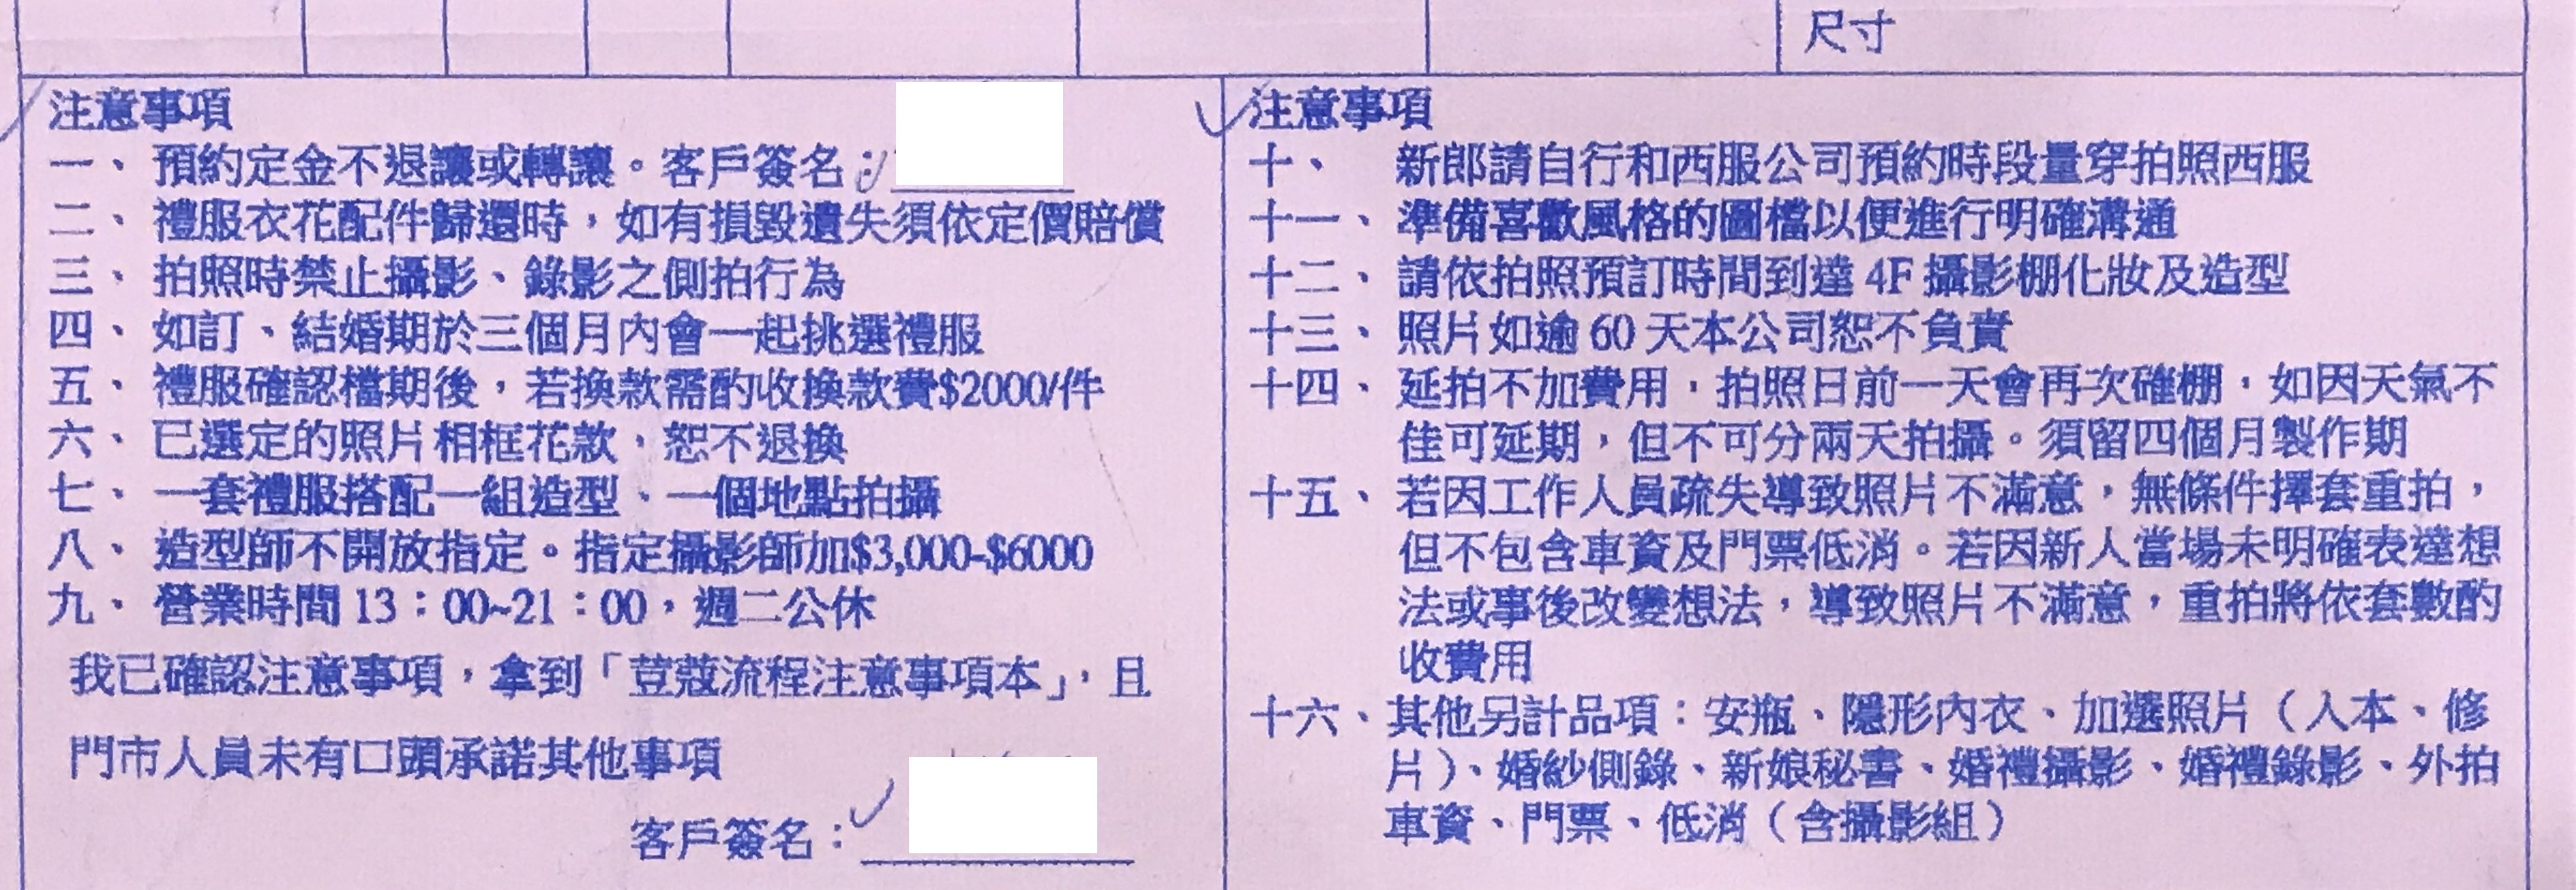 尺寸
注意事項
一、預約定金不退讓或轉讓。客戶簽名：
二、禮服衣花配件歸還時，如有損毀遺失須依定價賠償
三、拍照時禁止攝影、錄影之側拍行為
四、如訂、結婚期於三個月內會一起挑選禮服
五、禮服確認檔期後，若換款需酌收換款費$2000/件
六、已選定的照片相框花款，恕不退換
七、一套禮服搭配一組造型、一個地點拍攝
八、造型師不開放指定。指定攝影師加$3,000-$6000
九、營業時間 13：00~21：00，週二公休
我已確認注意事項，拿到「荳蔻流程注意事項本」，且
門市人員未有口頭承諾其他事項
客戶簽名：
注意事項
十、新郎請自行和西服公司預約時段量穿拍照西服
十一、準備喜歡風格的圖檔以便進行明確溝通
十二、請依拍照預訂時間到達 4F 攝影棚化妝及造型
十三、照片如逾 60 天本公司恕不負責
十四、延拍不加費用，拍照日前一天會再次確棚，如因天氣不
佳可延期，但不可分兩天拍攝。須留四個月製作期
十五、若因工作人員疏失導致照片不滿意，無條件擇套重拍，
但不包含車資及門票低消。若因新人當場未明確表達想
法或事後改變想法，導致照片不滿意，重拍將依套數酌
收費用
十六、其他另計品項：安瓶、隱形內衣、加選照片（入本、修
片）、婚紗側錄、新娘秘書、婚禮攝影、婚禮錄影、外拍
車資、門票、低消（含攝影組）